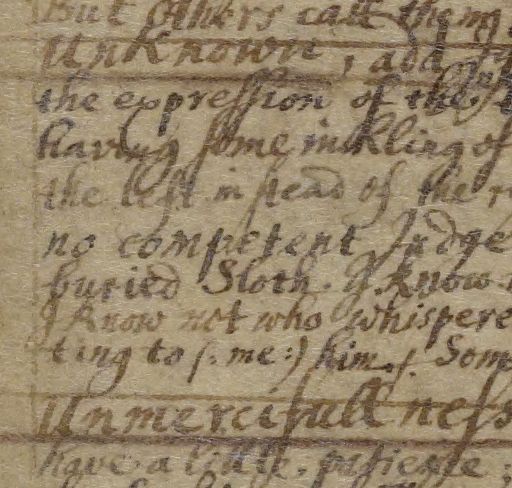 But others call them
Unknown, add
the expression of the
having some inkling of
the left in stead of the
no competent Judge
buried Sloth. I know
I know not who whispere
ting to (: me:) him. Som
Unmercifull ness
have a little patience